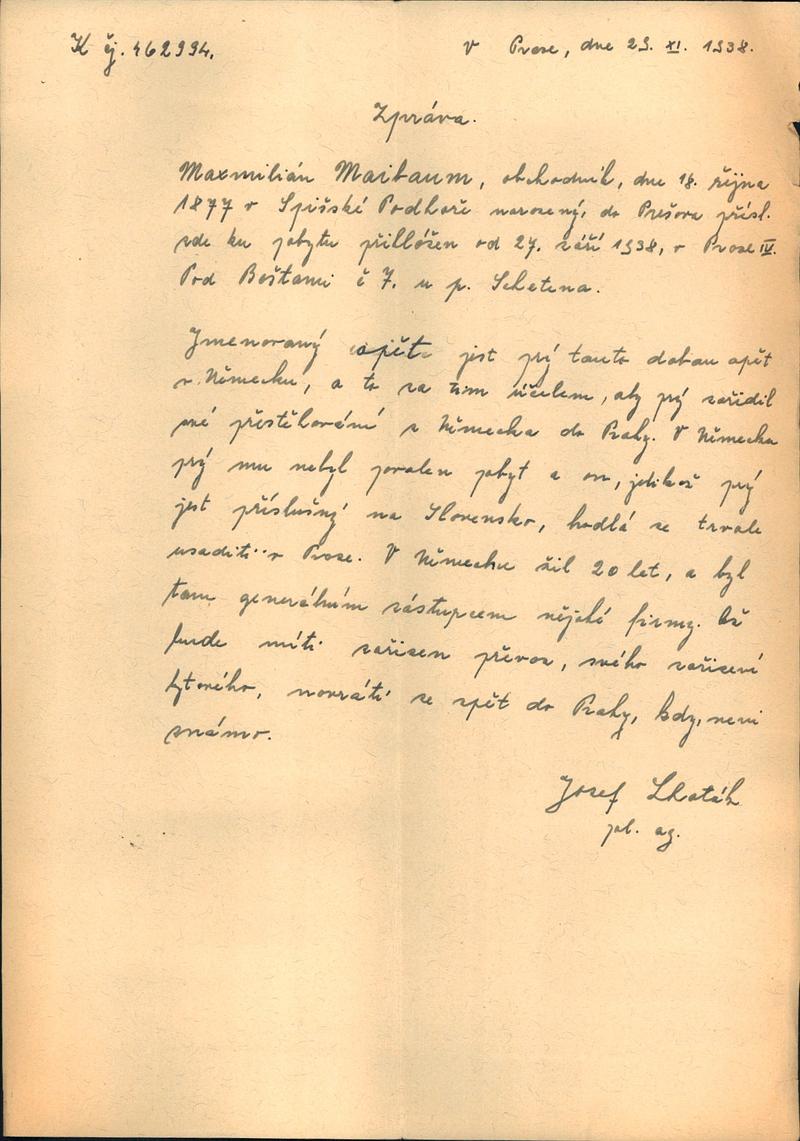 K čj. 462994.
V Praze, dne 29. XI. 1938.
Zpráva.
Maxmilián Maibaum, obchodník, dne 18. října
1877 v Spišské Podhoře narozený, do Prešova přísl.
zde ku pobytu přihlášen od 27. září 1938, v Praze IV.
Pod Baštami č 7. u p.
Jmenovaný opět jest prý touto dobou opět
v Německu, a to za tím účelem, aby prý zařídil
své přestěhování z Německa do Prahy. V Německu
prý mu nebyl povolen pobyt a on, jelikož prý
jest příslušný na Slovensko, hodlá se trvale
usaditi v Praze. V Německu žil 20 let, a byl
tam generálním zástupcem nějaké firmy. Až
bude míti zařízen převoz, svého zařízení
bytového, navrátí se zpět do Prahy, kdy, není
známo.
Josef
pol. ag.